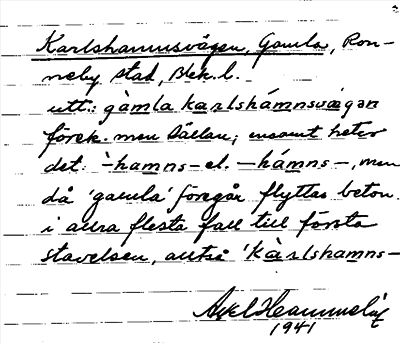 Karlshamnsvägen, Gamla, Ron-
neby stad, Blek. l.
utt.: gàmla karlshámnsvägən
förek. men sällan; ensamt heter
det: -̀hamns- el. -hámns-, men
då 'gamla' föregår flyttas beton.
i allra flesta fall till första
stavelsen, alltså 'Kàrlshamns-
Axel
1941